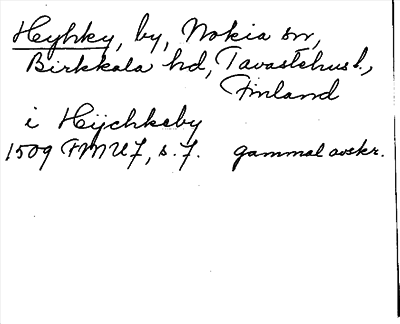 Heyhky, by, Nokia sn,
Birkkala hd, Tavastehus l.,
Finland
i Hijchkeby
1509 FMU 7, s. 7. gammal avskr.